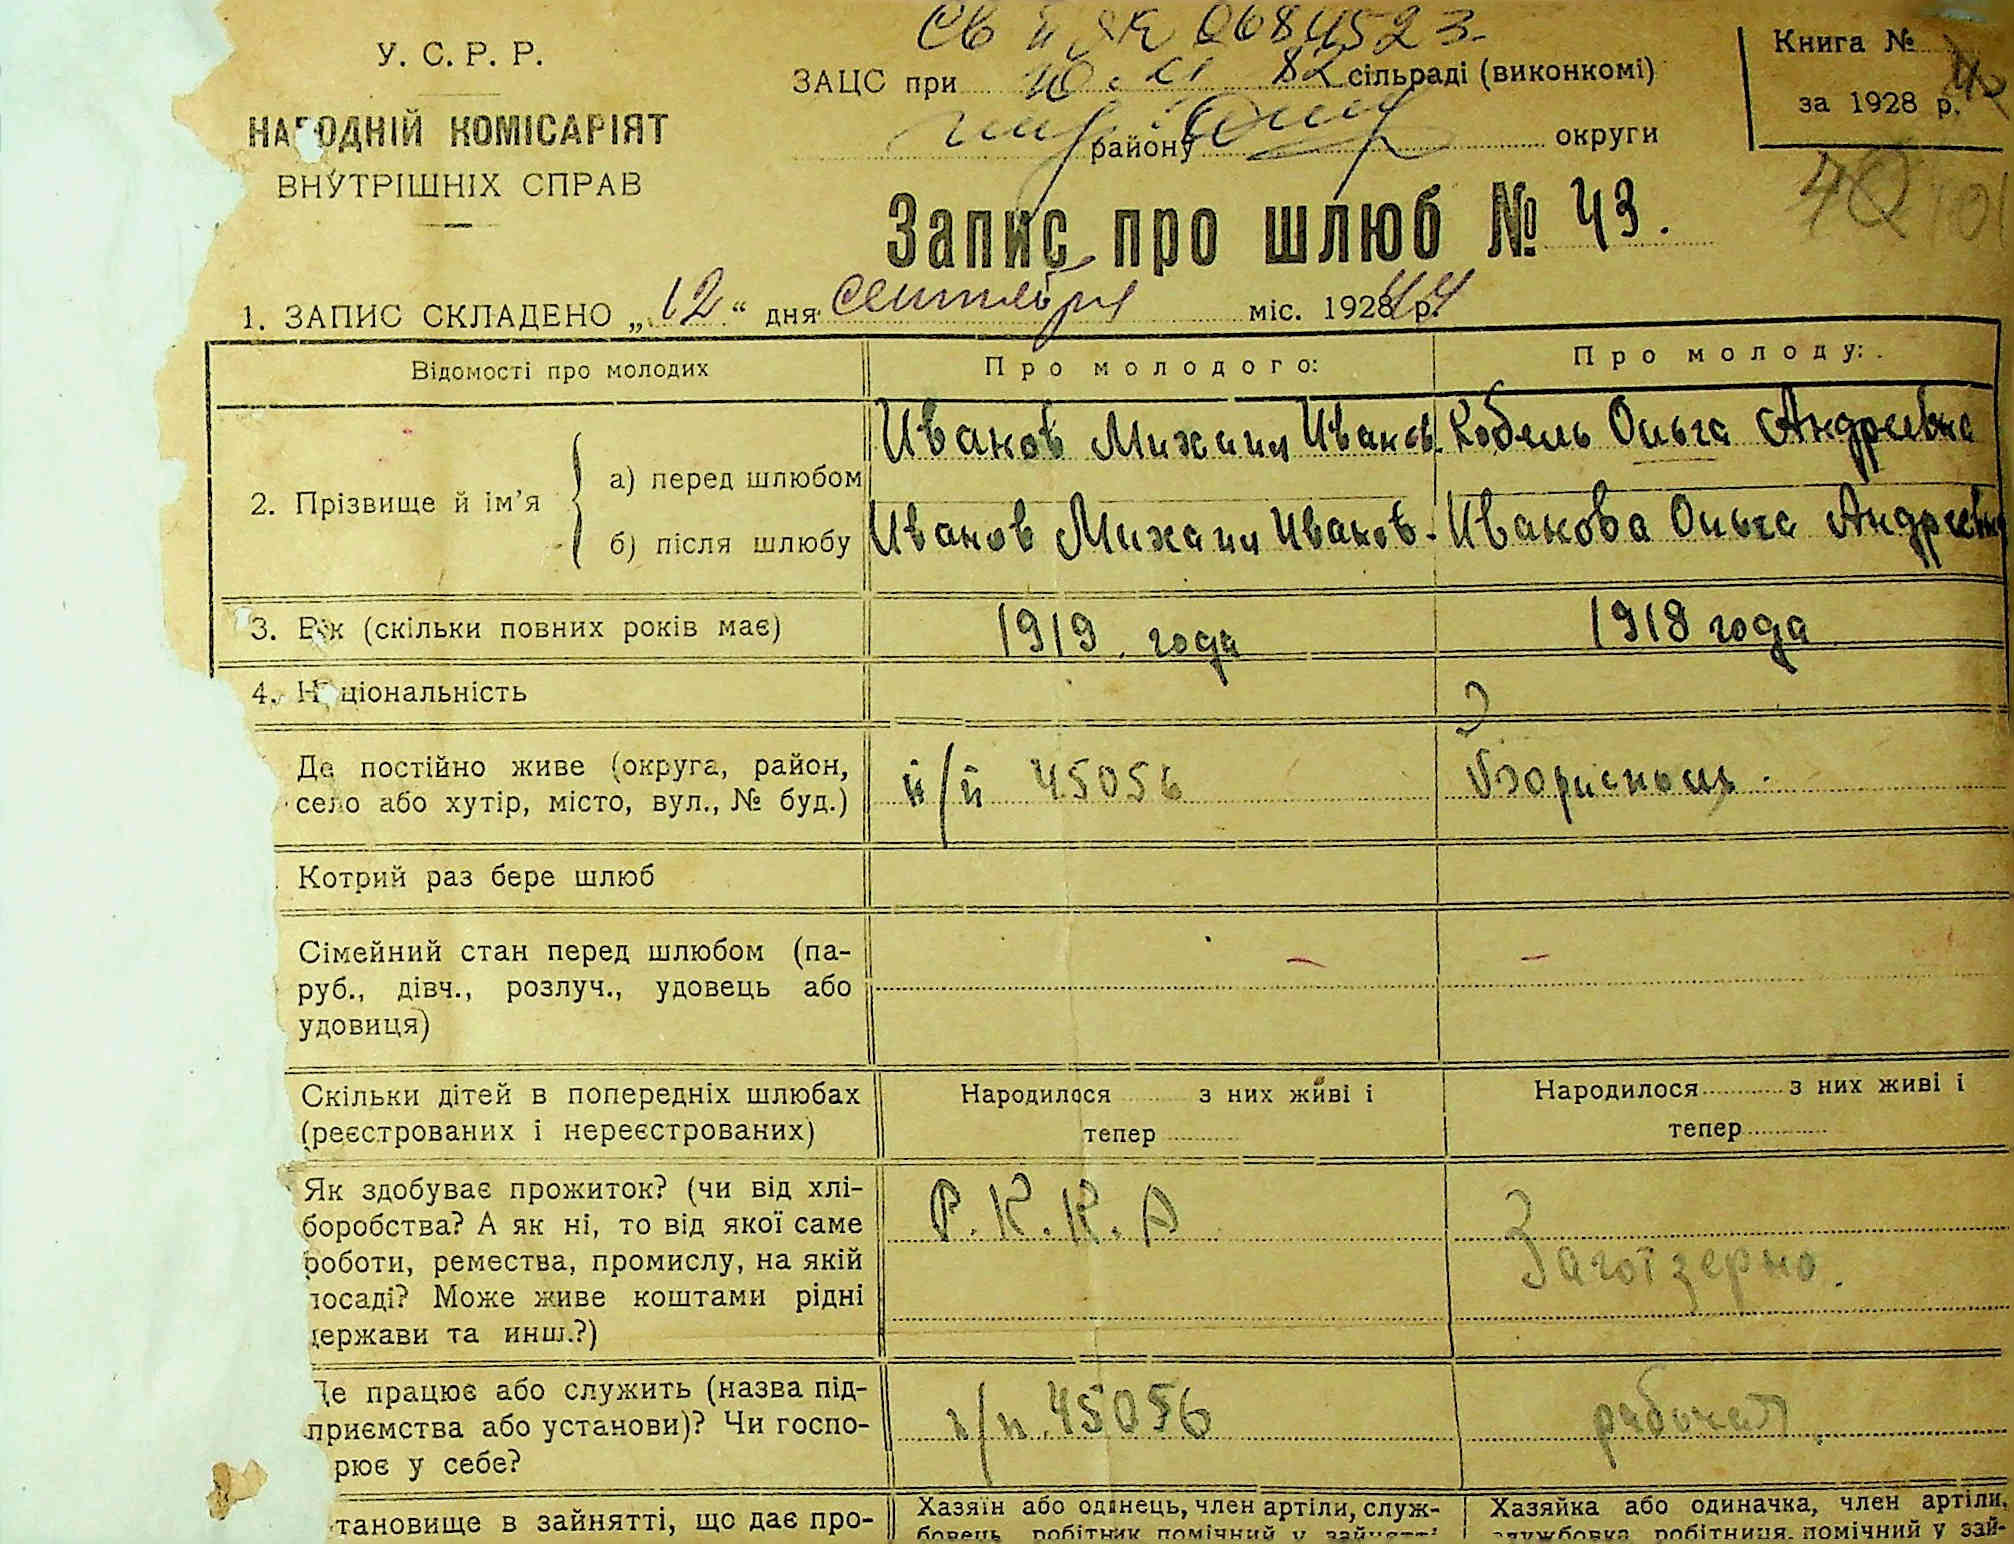 У. С. Р. Р.
НАРОДНІЙ КОМІСАРІЯТ
ВНУТРІШНІХ СПРАВ
Св II ЯК 0684523
ЗАЦС при 10. XI 82 сільраді (виконкомі)
району округи
Книга №
за 1928 р.
Запис про шлюб № 43.
1. ЗАПИС СКЛАДЕНО „12“ дня сентября міс. 1928 44 р.
Відомості про молодих
Про молодого:
Про молоду:
2. Прізвище й ім’я
а) перед шлюбом
Иванов Михаил Иванов.
Кобель Ольга Андреевна
б) після шлюбу
Иванов Михаил Иванов.
Иванова Ольга Андреевн
3. Вік (скільки повних років має)
1919 года
1918 года
4. Національність
Де постійно живе (округа, район,
село або хутір, місто, вул., № буд.)
п/п 45056
Борисполь.
Котрий раз бере шлюб
Сімейний стан перед шлюбом (па-
руб., дівч., розлуч., удовець або
удовиця)
Скільки дітей в попередніх шлюбах
(реєстрованих і нереєстрованих)
Народилося з них живі і
тепер
Народилося з них живі і
тепер
Як здобуває прожиток? (чи від хлі-
боробства? А як ні, то від якої саме
роботи, ремества, промислу, на якій
посаді? Може живе коштами рідні
держави та инш.?)
Р.К.К.А
Заготзерно.
Де працює або служить (назва під-
приємства або установи)? Чи госпо-
рює у себе?
п/п. 45056
работает
тановище в зайнятті, що дає про-
Хазяїн або одинець, член артіли, служ-
бовець, робітник, помічний у зайнятті
Хазяйка або одиначка, член артіли,
службовка, робітниця, помічний у зай-